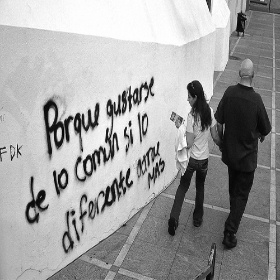 Porque gustarse
de lo común si lo
diferente asume
MÁS
FDK